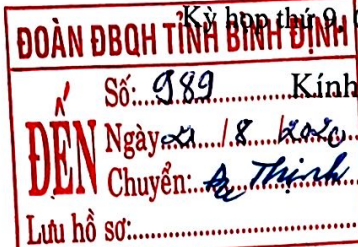 Kỳ họp thứ 9,
ĐOÀN ĐBQH TỈNH BÌNH ĐỊNH
Số: 989 Kính
ĐẾN
Ngày 21 / 8 / 2020
Chuyển: Thịnh
Lưu hồ sơ: